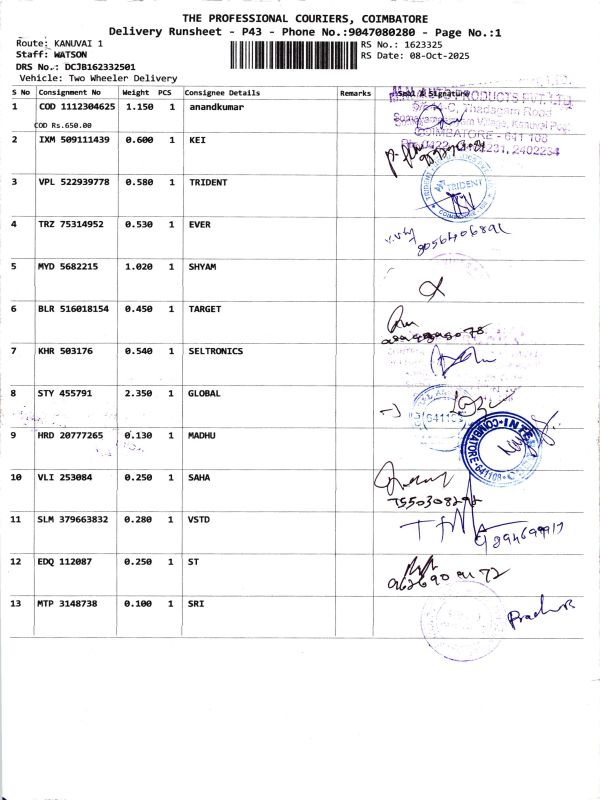 THE PROFESSIONAL COURIERS, COIMBATORE
Delivery Runsheet - P43 - Phone No.:9047080280 - Page No.:1
Route: KANUVAI 1
RS No.: 1623325
Staff: WATSON
RS Date: 08-Oct-2025
DRS No.: DCJB162332501
Vehicle: Two Wheeler Delivery
S No Consignment No Weight PCS Consignee Details Remarks Seal & Signature
1 COD 1112304625 1.150 1 anandkumar
COD Rs.650.00
COIMBATORE - 641 108
2 IXM 509111439 0.600 1 KEI
3 VPL 522939778 0.580 1 TRIDENT
TRIDENT
4 TRZ 75314952 0.530 1 EVER
8056406891
5 MYD 5682215 1.020 1 SHYAM
6 BLR 516018154 0.450 1 TARGET
7 KHR 503176 0.540 1 SELTRONICS
8 STY 455791 2.350 1 GLOBAL
9 HRD 20777265 0.130 1 MADHU
COIMBATORE-641108
10 VLI 253084 0.250 1 SAHA
11 SLM 379663832 0.280 1 VSTD
12 EDQ 112087 0.250 1 ST
13 MTP 3148738 0.100 1 SRI